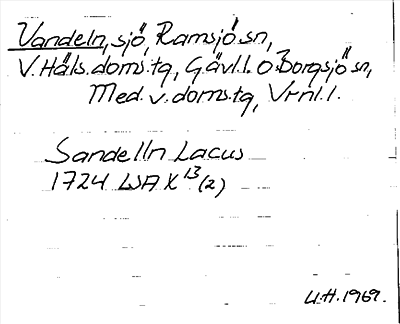 Vandeln, sjö, Ramsjö sn,
V. Häls. doms. tg, Gävl. l. o. Borgsjö sn,
Med. v. doms. tg, Vrnl. l.
Sandelln Lacus
1724 LSA X 13 (2)
U.H. 1969.